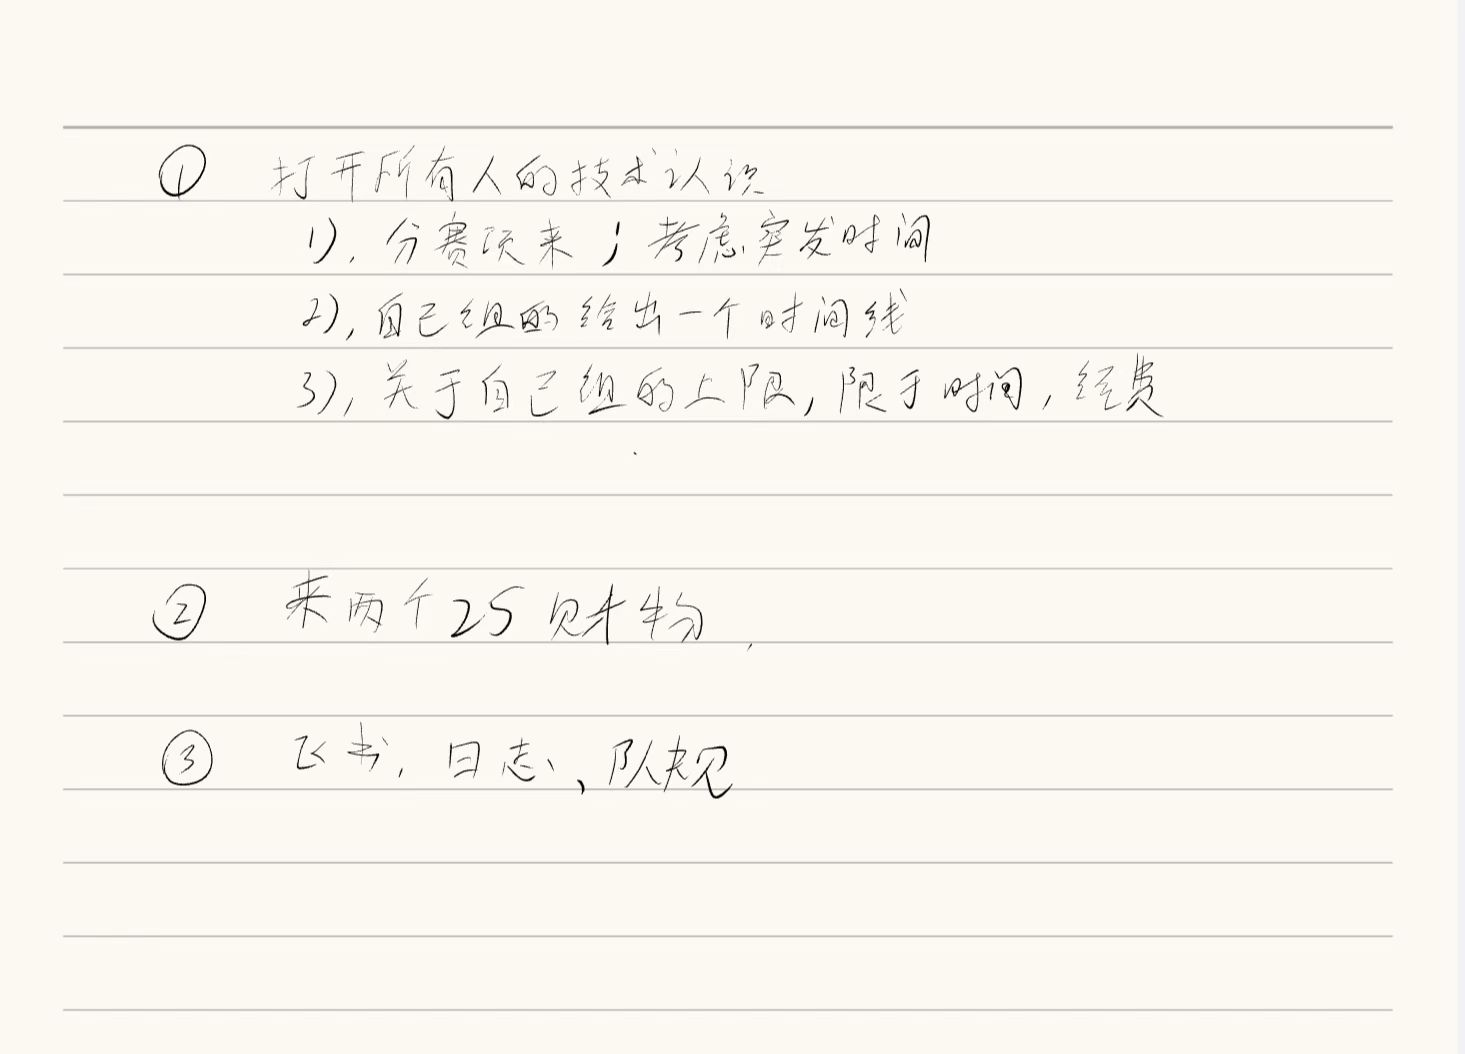 ① 打开所有人的技术认识
1), 分赛项来;考虑突发时间
2), 自己组的给出一个时间线
3), 关于自己组的上限, 限于时间, 经费
② 来两个25财物,
③ 飞书, 日志、队规